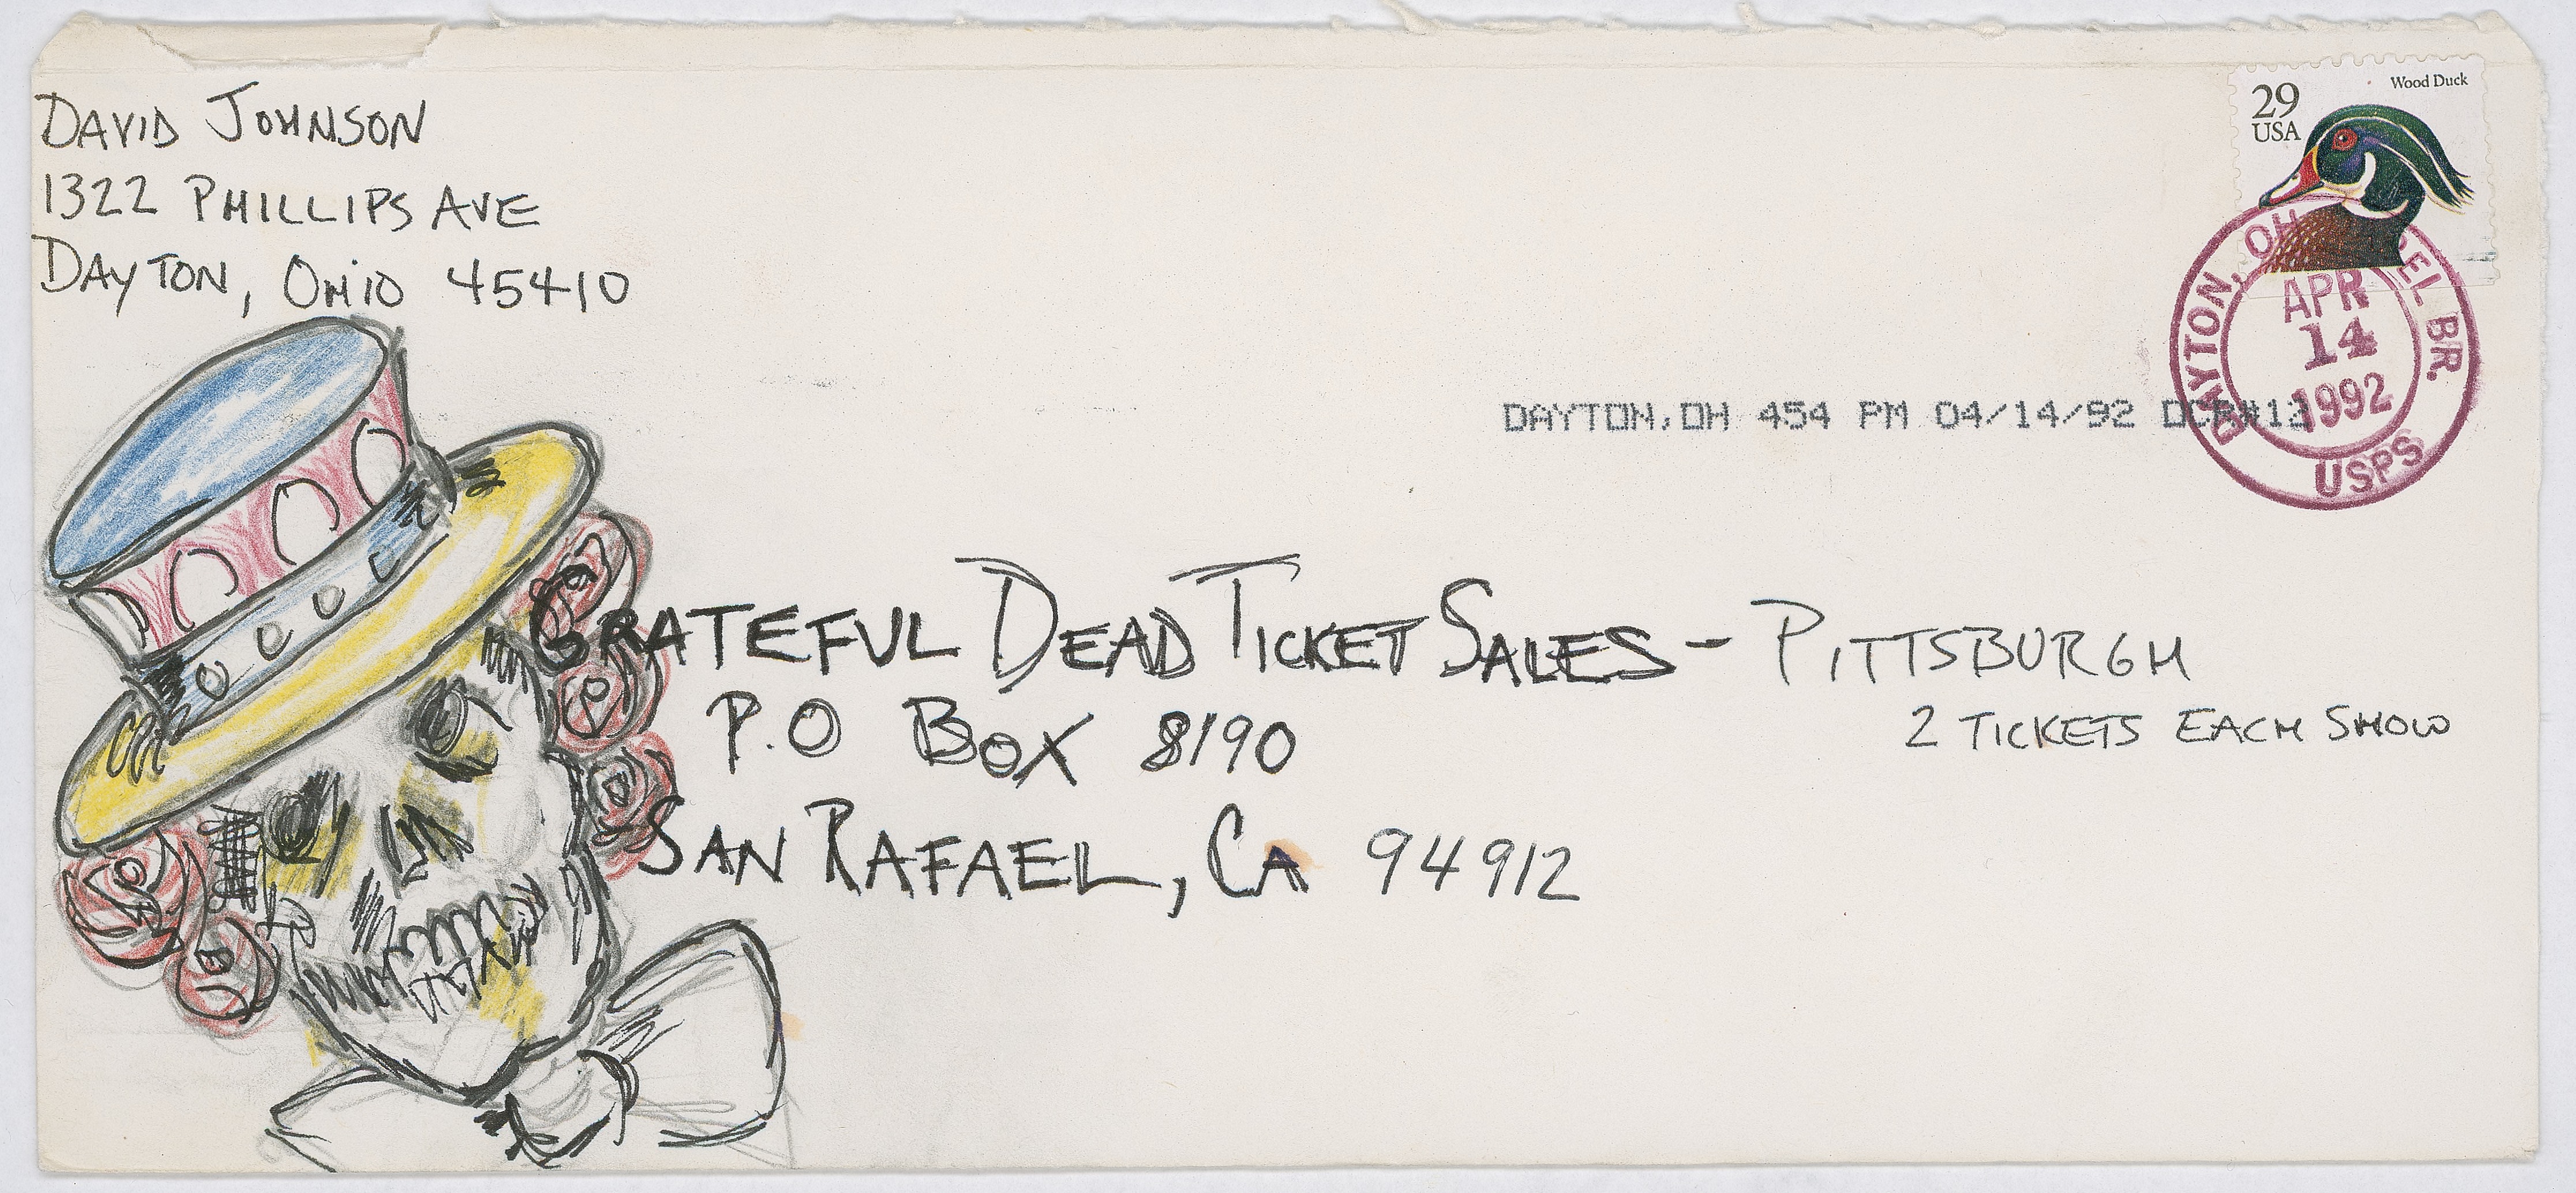 DAVID JOHNSON
1322 PHILLIPS AVE
DAYTON, OHIO 45410
Wood Duck
29
USA
DAYTON, OH
EL BR.
APR
14
1992
USPS
DAYTON, OH 454 PM 04/14/92
GRATEFUL DEAD TICKET SALES - PITTSBURGH
2 TICKETS EACH SHOW
P.O BOX 8190
SAN RAFAEL, CA 94912